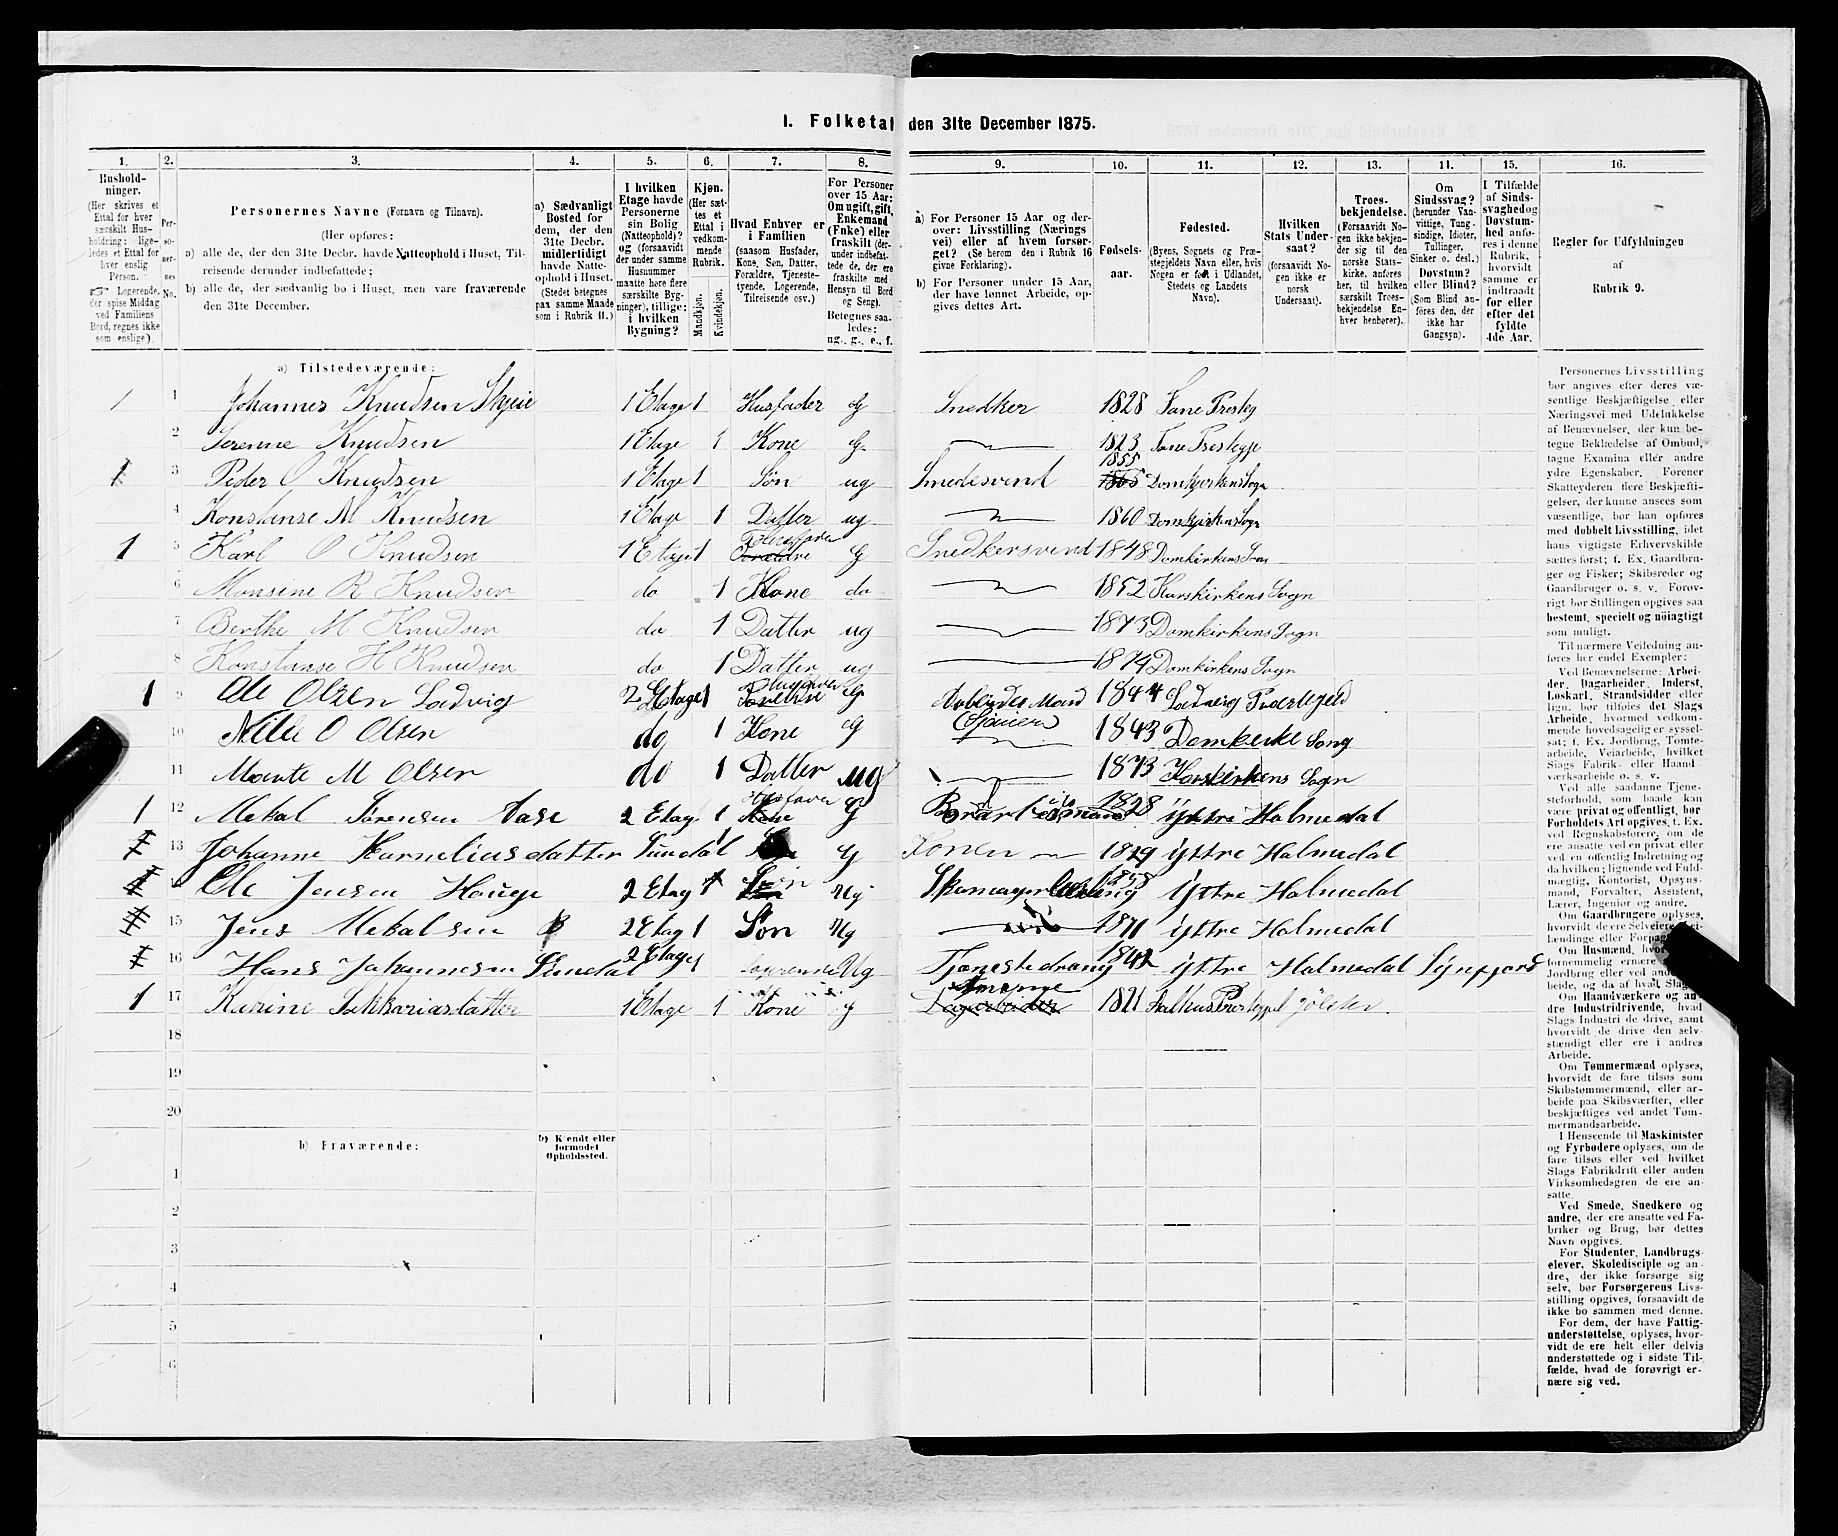 1. Folketal den 31te December 1875.
1. 2. 3. 4. 5. 6. 7. 8. 9. 10. 11. 12. 13. 14. 15. 16.
Husholdninger. (Her skrives et Ettal for hver særskilt Husholdning; ligeledes et Ettal for hver enslig Person. Logerende, der spise Middag ved Familiens Bord, regnes ikke som enslige).
Personernes No.
Personernes Navne (Fornavn og Tilnavn).
(Her opføres:
a) alle de, der den 31te Decbr. havde Natteophold i Huset, Tilreisende derunder indbefattede;
b) alle de, der sædvanlig bo i Huset, men vare fraværende den 31te December.
a) Sædvanligt Bosted for dem, der den 31te Decbr. midlertidigt havde Natteophold i Huset. (Stedet betegnes paa samme Maade som i Rubrik 11.)
I hvilken Etage havde Personerne sin Bolig (Natteophold)? og (forsaavidt der under samme Husnummer maatte høre flere særskilte Bygninger), tillige: i hvilken Bygning?
Kjøn. (Her sættes et Ettal i vedkommende Rubrik.
Mandkjøn. Kvindekjøn.
Hvad Enhver er i Familien (saasom Husfader, Kone, Søn, Datter, Forældre, Tjenestetyende, Logerende, Tilreisende osv.)
For Personer over 15 Aar: Om ugift, gift, Enkemand (Enke) eller fraskilt (derunder indbefattede de, der ere fraskilte med Hensyn til Bord og Seng). Betegnes saaledes: ug., g., e., f.
a) For Personer 15 Aar og derover: Livsstilling (Næringsvei) eller af hvem forsørget? (Se herom den i Rubrik 16 givne Forklaring).
b) For Personer under 15 Aar, der have lønnet Arbeide, opgives dettes Art.
Fødselsaar.
Fødested. (Byens, Sognets og Præstegjeldets Navn eller, hvis Nogen er født i Udlandet, Stedets og Landets Navn).
Hvilken Stats Undersaat? (forsaavidt Nogen ikke er norsk Undersaat).
Troesbekjendelse. (Forsaavidt Nogen ikke bekjender sig til den norske Statskirke, anføres her, til hvilken særskilt Troesbekjendelse Enhver henhører).
Om Sindssvag? (herunder Vanvittige, Tungsindige, Idioter, Tullinger, Sinker o. desl.) Døvstum? eller Blind? (Som Blind anføres den, der ikke har Gangsyn).
I Tilfælde af Sindssvaghed og Døvstumhed anføres i denne Rubrik, hvorvidt samme er indtraadt før eller efter det fyldte 4de Aar.
Regler for Udfyldningen af Rubrik 9.
a) Tilstedeværende:
1 1 Johannes Knudsen Skjeie 1 Etage 1 Husfader G Snedker 1828 Fane Presteg
2 Serenne Knudsen 1 Etage 1 Kone G 1823 Fane Prestegje
1 3 Peder O Knudsen 1 Etage 1 Søn ug Smedesvend 1855 1865 Domkjerkens Sogn
4 Konstanse M Knudsen 1 Etage 1 Datter ug 1860 Domkjirkens Sogn
1 5 Karl O Knudsen 1 Etage 1 Husfader G Snedkersvend 1848 Domkirkens Sogn
6 Monsine R Knudsen do 1 Kone do 1852 Korskirkens Sogn
7 Berthe M Knudsen do 1 Datter ug 1873 Domkirkens Sogn
8 Konstanse H Knudsen do 1 Datter ug 1874 Domkirkens Sogn
1 9 Ole Olsen Ladvig 2 Etage 1 Husfader G Arbeides Mand 1844 Ladvig Prestegjeld
10 Nille O Olsen do 1 Kone G 1843 Domkerke Song
11 Marite M Olsen do 1 Datter ug 1873 Korskirkens Sogn
1 12 Mekal Sørensen Aase 2 Etag 1 Husfader G 1828 Yttre Holmedal
13 Johanne Karneliusdatter Sundal 1 G Konen 1829 Yttre Holmedal
Ole Jensen Hauge 2 Etag 1 Søn Ug Skomager 1858 Yttre Holmedal
15 Jens Mekalsen 2 Etag 1 Søn Ug 1871 Yttre Holmedal
16 Hans Johannesen Sundal 2 Etage 1 Logerende Ug Tjenestedrang 1842 Yttre Holmedal Synfjord
1 17 Karine Sakkariasdatter 1 Etage 1 Kone g Dagarbeider 1821 Prestegjel Jølster.
18
19
20
b) Fraværende:
b) Kjendt eller formodet Opholdssted.
1
2
3
4
5
6
Personernes Livsstilling bør angives efter deres væsentlige Beskjæftigelse eller Næringsvei med Udelukkelse af Benævnelser, der kun betegne Beklædelse af Ombud, tagne Examina eller andre ydre Egenskaber. Forener Skatteyderen flere Beskjæftigelser, der kunne ansees som væsentlige, bør han opføres med dobbelt Livsstilling, idet hans vigtigste Erhvervskilde sættes først; f. Ex. Gaardbruger og Fisker; Skibsreder og Gaardbruger o. s. v. Forøvrigt bør Stillingen opgives saa bestemt, specielt og nöiagtigt som muligt.
Til nærmere Veiledning anføres her endel Exempler:
Ved Benævnelserne: Arbeider, Dagarbeider, Inderst, Løskarl, Strandsidder eller lign. bør tilføies det Slags Arbeide, hvormed vedkommende hovedsagelig er sysselsat; f. Ex. Jordbrug, Tomtearbeide, Veiarbeide, hvilket Slags Fabrik- eller Haandværksarbeide o. s. v.
Ved alle saadanne Tjenesteforhold, som baade kan være privat og offentligt, bør Forholdets Art opgives, f. Ex. ved Regnskabsførere, om de ere ansatte ved en privat eller ved en offentlig Indretning og da hvilken; lignende ved Fuldmægtig, Kontorist, Opsynsmand, Forvalter, Assistent, Lærer, Ingeniør og andre.
Om Gaardbrugere oplyses, hvorvidt de ere Selveiere, Leilændinge eller
Om Husmænd,
fornemmelig ernære
Jordbrug eller ved
beide, og da af hvad Slags
Om Haandværkere og andre Industridrivende, hvad Slags Industri de drive, samt hvorvidt de drive den selvstændigt eller ere i andres Arbeide.
Om Tømmermænd oplyses, hvorvidt de fare tilsøs som Skibstømmermænd, eller arbeide paa Skibsværfter, eller beskjæftiges ved andet Tømmermandsarbeide.
I Henseende til Maskinister og Fyrbødere oplyses, om de fare tilsøs eller ved hvilket Slags Fabrikdrift eller anden Virksomhedsgren de ere ansatte.
Ved Smede, Snedkere og andre, der ere ansatte ved Fabriker og Brug, bør dettes Navn opgives.
For Studenter, Landbrugselever, Skoledisciple og andre, der ikke forsørge sig selv, bør Forsørgerens Livsstilling opgives, forsaavidt de ikke bo sammen med denne.
For dem, der have Fattigunderstøttelse, oplyses, hvorvidt de ere helt eller delvis understøttede og i sidste Tilfælde, hvad de forøvrigt ernære sig ved.